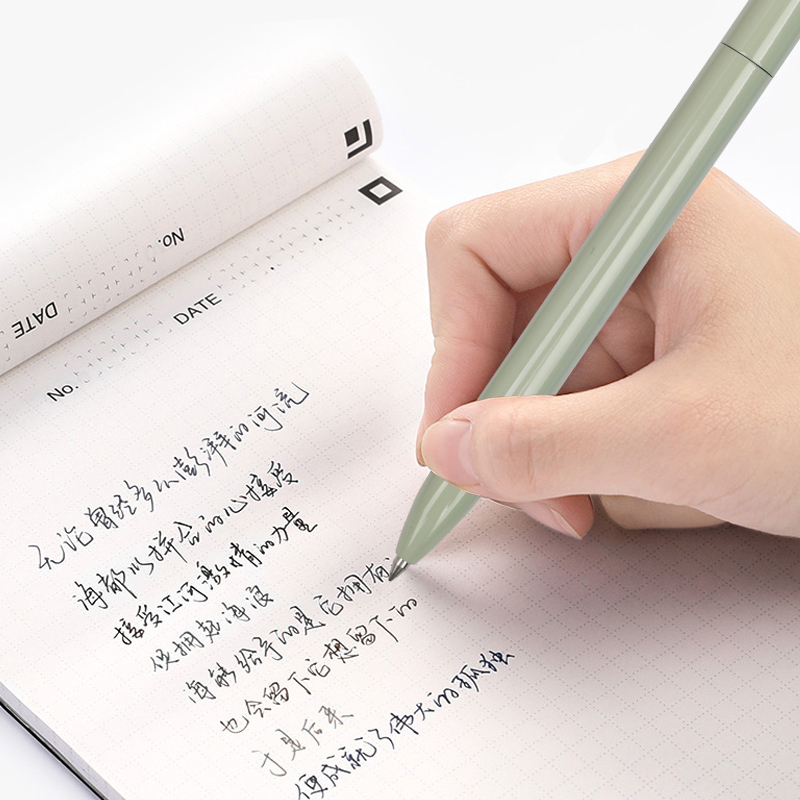 No.
DATE
No.
DATE
无论曾经多么澎湃的河流
海都以拼合的心接受
接受江河激情的力量
便拥起海浪
海能给予的是它拥有
也会留下它想留下的
于是后来
便成就了伟大的孤独